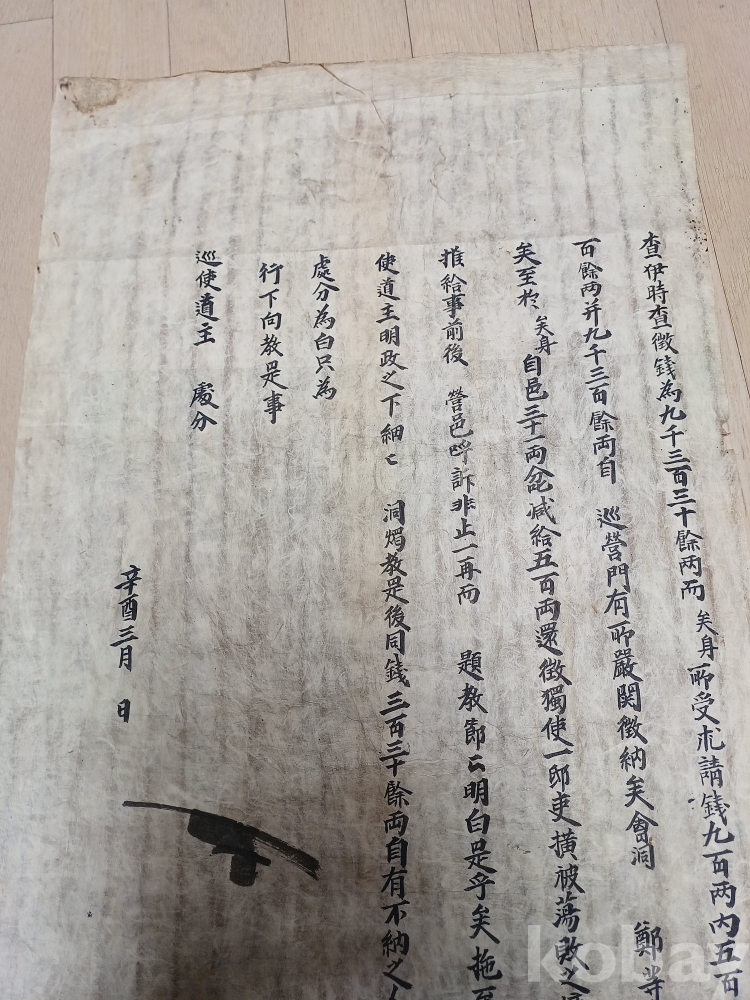 查伊時查徵錢為九千三百三十餘兩而 矣身所受朮請錢九百兩內五百
百餘兩并九千三百餘兩自 巡營門有所嚴関徵納矣會洞 鄭等
矣至於 矣身自邑三十一兩忿减給五百兩還徵獨使一邸吏橫被蕩敗之
推給事前後 營邑呼訴非止一再而 題教節二明白是乎矣拖至
使道主明政之下細乚 洞燭教是後同錢三百三十餘兩自有不納之人
處分為白只為
行下向教是事
巡使道主 處分
辛酉三月 日
kobay